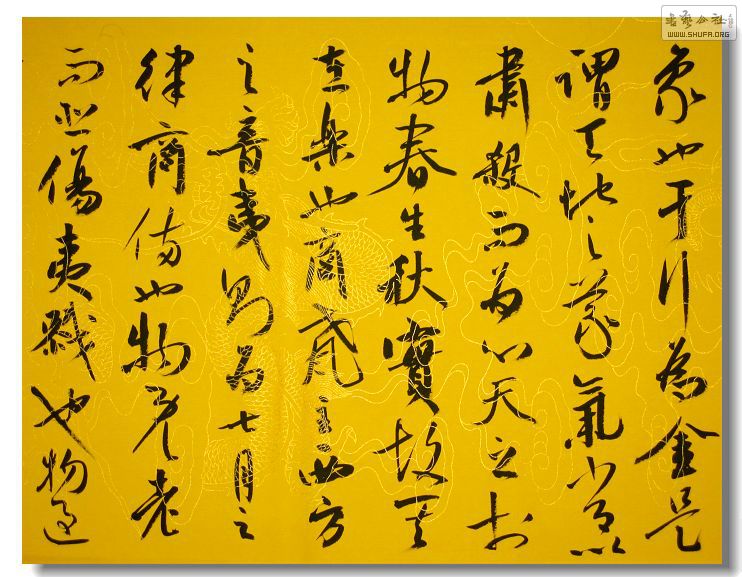 書藝公社
WWW.SHUFA.ORG
象也于行為金是
謂天地之義氣常以
肅殺而為心天之於
物春生秋實故其
在樂也商聲主西方
之音夷則為七月之
律商傷也物既老
而悲傷夷戮也物過